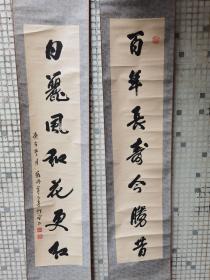 百年長壽今勝昔
日麗風和花更红